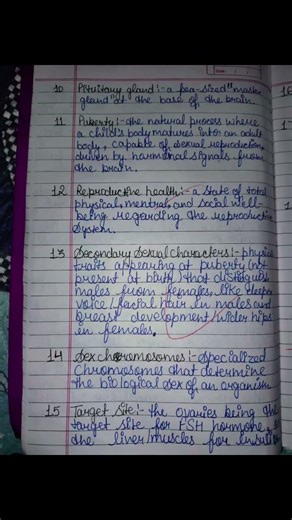 10 Pituitary gland :- a pea-sized "master
gland" at the base of the brain.
11 Puberty :- the natural process where
a child's body matures into an adult
body, capable of sexual reproduction,
driven by hormonal signals from
the brain.
12 Reproductive health :- a state of total
physical, mentral, and social well-
being regarding the reproductive
system.
13 Secondary sexual characters :- physical
traits appearing at puberty (not
present at birth) that distinguish
males from females, like deeper
voice / facial hair in males and
breast development / wider hips
in females.
14 Sex chromosomes :- specialized
Chromosomes that determine
the biological sex of an organism
15 Target site :- the ovaries being the
target site for FSH hormone,
the liver/muscles for insulin